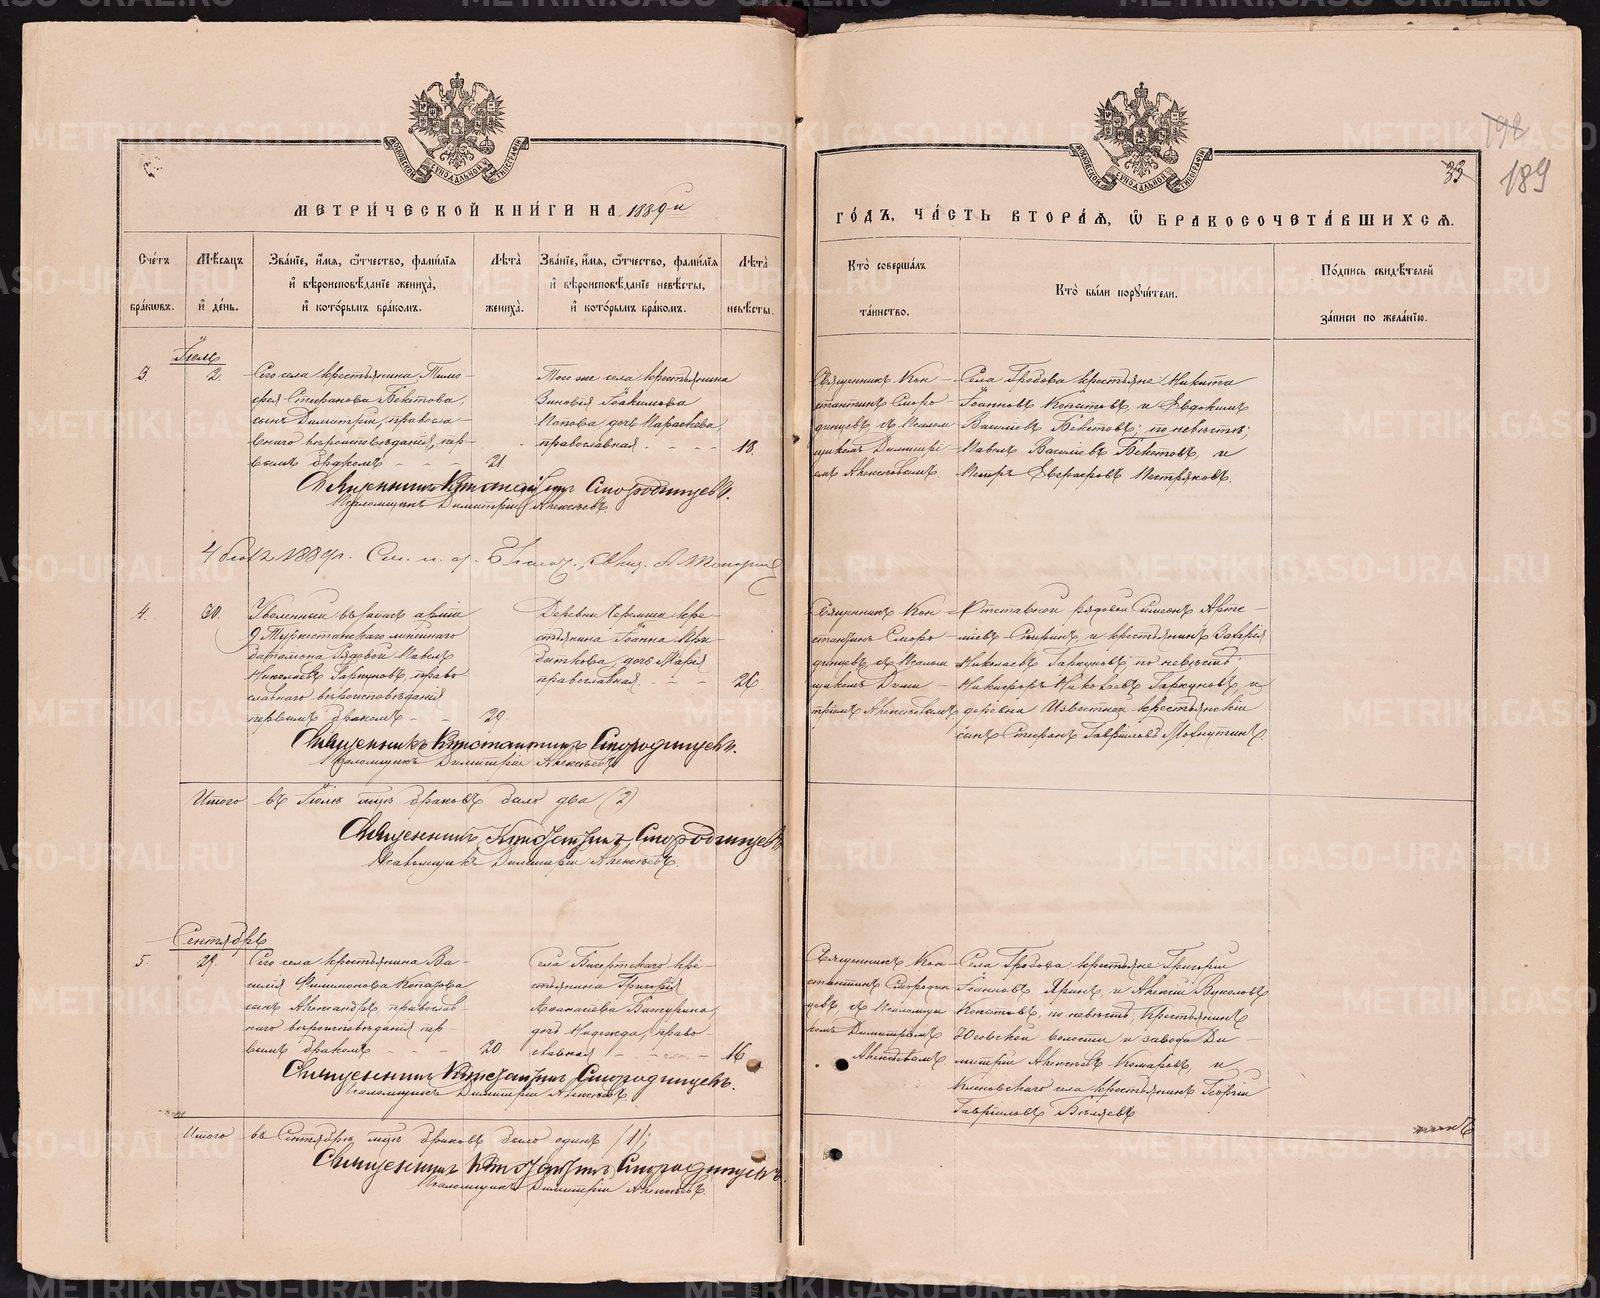 МЕТРИ́ЧЕСКОЙ КНИ́ГИ НА 1889й
ГО́ДЪ, ЧА́СТЬ ВТОРА́Я, Ѽ БРАКОСОЧЕТА́ВШИХСЯ.
33
198
189
Сче́тъ бра́ковъ.
Мѣ́сяцъ и҆ де́нь.
Зва́нїе, и҆́мя, ѻ҆́тчество, фами́лїя
и҆ вѣроисповѣ́данїе жениха̀,
и҆ кото́рымъ бра́комъ.
Лѣ́та жениха̀.
Зва́нїе, и҆́мя, ѻ҆́тчество, фами́лїя
и҆ вѣроисповѣ́данїе невѣ́сты,
и҆ кото́рымъ бра́комъ.
Лѣ́та невѣ́сты.
Кто̀ соверша́лъ
та́инство.
Кто̀ бы́ли порꙋчи́тели.
По́дпись свидѣ́телей
за́писи по жела́нїю.
Іюль
3. 2.
Сего села крестьянина Тимо-
фея Стефанова Бекетова,
сынъ Димитрій, правосла-
внаго вѣроисповѣданія, пер-
вымъ бракомъ - - 21.
Того же села крестьянина
Зиновія Іоакимова
Попова дочь Параскева,
православная. - - - 18.
Священникъ Кон-
стантинъ Сморо-
динцевъ съ Псалом-
щикомъ Димитрі-
емъ Алексѣевымъ.
Села Гробова крестьяне: Никита
Іоанновъ Копытовъ, и Евдокимъ
Василіевъ Бекетовъ; по невѣстѣ:
Павелъ Василіевъ Бекетовъ, и
Петръ Пестряковъ.
Священникъ Константинъ Смородинцевъ.
Псаломщикъ Димитрій Алексѣевъ.
4. 30.
Уволенный въ запасъ арміи
9 Туркестанскаго линейнаго
баталіона Рядовой Павелъ
Николаевъ Гаркуновъ, право
славнаго вѣроисповѣданія
первымъ бракомъ - - 29.
Деревни кре-
стьянина Іоанна
дочь Марія
православная. - - 26
Священникъ Кон-
стантинъ Сморо-
динцевъ съ Псалом
щикомъ Дими-
тріемъ Алексѣевымъ
Отставной рядовой Симеонъ Арте-
міевъ Спиринъ и крестьянинъ Захарія
Николаевъ Гаркуновъ; по невѣстѣ:
Никифоръ Николаевъ Гаркуновъ и
деревни Известной крестьянскій
сынъ Стефанъ Гавріиловъ
Священникъ Константинъ Смородинцевъ.
Псаломщикъ Димитрій Алексѣевъ
Итого въ Іюлѣ мцѣ браковъ было два (2)
Священникъ Константинъ Смородинцевъ
Псаломщикъ Димитрій Алексѣевъ.
Сентябрь
5. 29.
Сего села крестьянина Ва-
силія Филимонова Копытова
сынъ Александръ, православ-
наго вѣроисповѣданія пер-
вымъ бракомъ - - - 20.
Села Бисертскаго кре-
стьянина Григорія
дочь Надежда, право-
славная - - - 16
Священникъ Кон-
стантинъ Смородин
цевъ, съ Псаломщи
комъ Димитріемъ
Алексѣевымъ
Села Гробова крестьяне Григорій
Іоанновъ и Алексій Вуколовъ
Копытовъ, по невѣстѣ, крестьянинъ
волости и завода Ди-
митрій Алексѣевъ Комаровъ, и
Кленовскаго села крестьянинъ Георгій
Гавріиловъ Бѣляевъ
Священникъ Константинъ Смородинцевъ.
Псаломщикъ Димитрій Алексѣевъ
Итого въ Сентябрѣ мцѣ браковъ было одинъ (1);
Священникъ Константинъ Смородинцевъ.
Псаломщикъ Димитрій Алексѣевъ.
METRIKI.GASO-URAL.RU